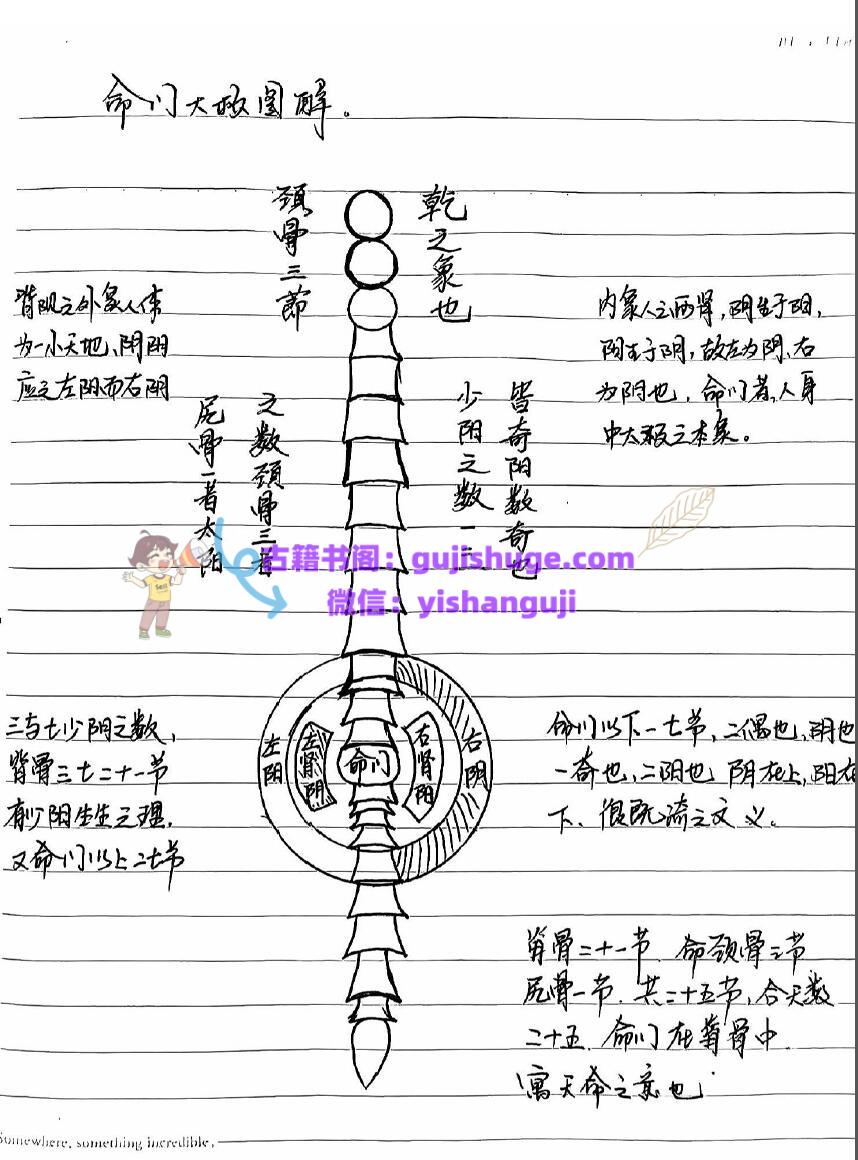 命门大极图解。
颈骨三節
乾之象也
背阳之外象人体
为一小天地、阴阳
应之左阳而右阴
内象人之两肾，阴生于阳，
阳生于阴，故左为阴、右
为阳也，命门者，人身
中太极之本象。
皆奇阳数奇也
少阳之数一三
之数颈骨三者
尻骨一者太阳
古籍书阁：gujishuge.com
微信：yishanguji
左阳
左肾阴
命门
右肾阳
右阴
三与七少阳之数，
背骨三七二十一节
有少阳生生之理，
又命门以上二七节
命门以下一七节，二偶也，阴也
一奇也，二阳也 阴在上，阳在
下、
之文义。
脊骨二十一节、命颈骨三节
尻骨一节、共二十五节，合天数
二十五、命门在脊骨中、
寓天命之意也
Somewhere, something incredible,